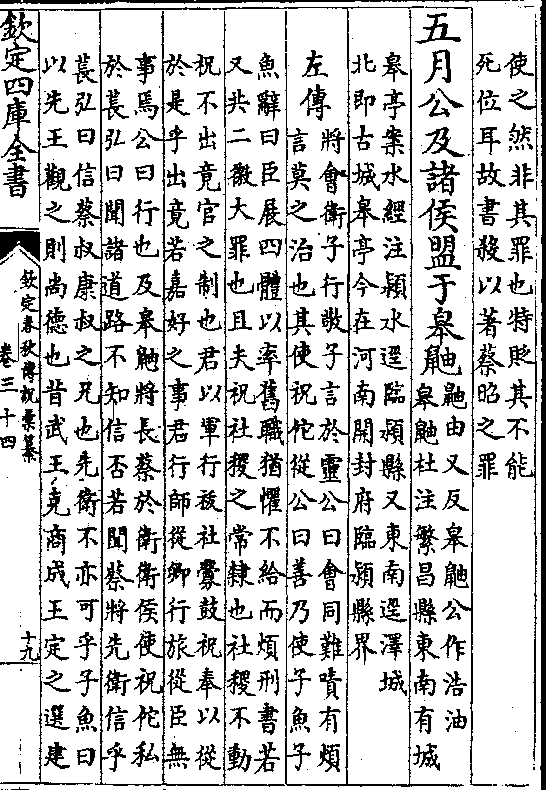 使之然非其罪也特貶其不能
死位耳故書殺以著蔡昭之罪
五月公及諸侯盟于皋鼬
鼬由又反皋鼬公作浩油
皋鼬杜注繁昌縣東南有城
皋亭案水經注潁水逕臨潁縣又東南逕澤城
北即古城皋亭今在河南開封府臨潁縣界
左傳
將會衛子行敬子言於靈公曰會同難嘖有煩
言莫之治也其使祝佗從公曰善乃使子魚子
魚辭曰臣展四體以率舊職猶懼不給而煩刑書若
又共二徼大罪也且夫祝社稷之常隸也社稷不動
祝不出竟官之制也君以軍行祓社釁鼓祝奉以從
於是乎出竟若嘉好之事君行師從卿行旅從臣無
事焉公曰行也及皋鼬將長蔡於衛衛侯使祝佗私
於萇弘曰聞諸道路不知信否若聞蔡將先衛信乎
萇弘曰信蔡叔康叔之兄也先衛不亦可乎子魚曰
以先王觀之則尚德也昔武王克商成王定之選建
欽定四庫全書
欽定春秋傳說彙纂
卷三十四
十九